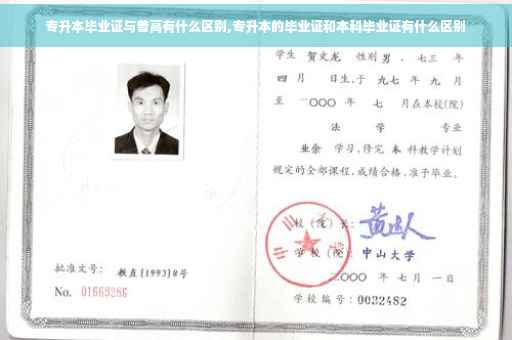 专升本毕业证与普高有什么区别,专升本的毕业证和本科毕业证有什么区别
学生 贺文龙 性别 男 、七三 年
四 月 日生,于 九七 年 九 月
至 二〇〇〇 年 七 月在本校(院)
法 学 专业
业余 学习,修完 本 科教学计划
规定的全部课程,成绩合格,准予毕业。
校(院)长:
学校(院):中山大学
二〇〇〇 年 七 月 一 日
学校编号:0032482
批准文号: 教直[1993]8号
No. 01669286